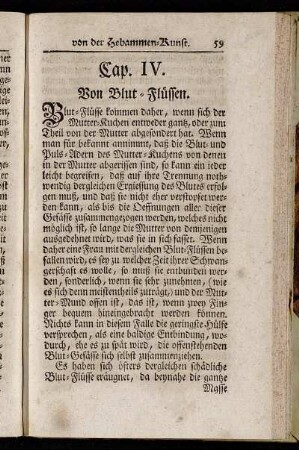 von der Hebammen-Kunst. 59
Cap. IV.
Von Blut-Flüssen.
Blut-Flüsse kommen daher, wenn sich der
Mutter-Kuchen entweder gantz, oder zum
Theil von der Mutter abgesondert hat. Wenn
man für bekannt annimmt, daß die Blut- und
Puls-Adern des Mutter-Kuchens von denen
in der Mutter abgerissen sind, so kann ein jeder
leicht begreifen, daß auf ihre Trennung noth-
wendig dergleichen Ergiessung des Blutes erfol-
gen muß, und daß sie nicht eher verstopfet wer-
den kann, als bis die Oeffnungen aller dieser
Gefässe zusammengezogen werden, welches nicht
möglich ist, so lange die Mutter von demjenigen
ausgedehnet wird, was sie in sich fasset. Wenn
daher eine Frau mit dergleichen Blut-Flüssen be-
fallen wird, es sey zu welcher Zeit ihrer Schwan-
gerschaft es wolle, so muß sie entbunden wer-
den, sonderlich, wenn sie sehr zunehmen, (wie
es sich denn meistentheils zuträgt,) und der Mut-
ter-Mund offen ist, das ist, wenn zwey Fin-
ger bequem hineingebracht werden können.
Nichts kann in diesem Falle die geringste Hülfe
versprechen, als eine baldige Entbindung, wo-
durch, ehe es zu spät wird, die offenstehenden
Blut-Gefässe sich selbst zusammenziehen.
Es haben sich öfters dergleichen schädliche
Blut-Flüsse eräugnet, da beynahe die gantze
Masse